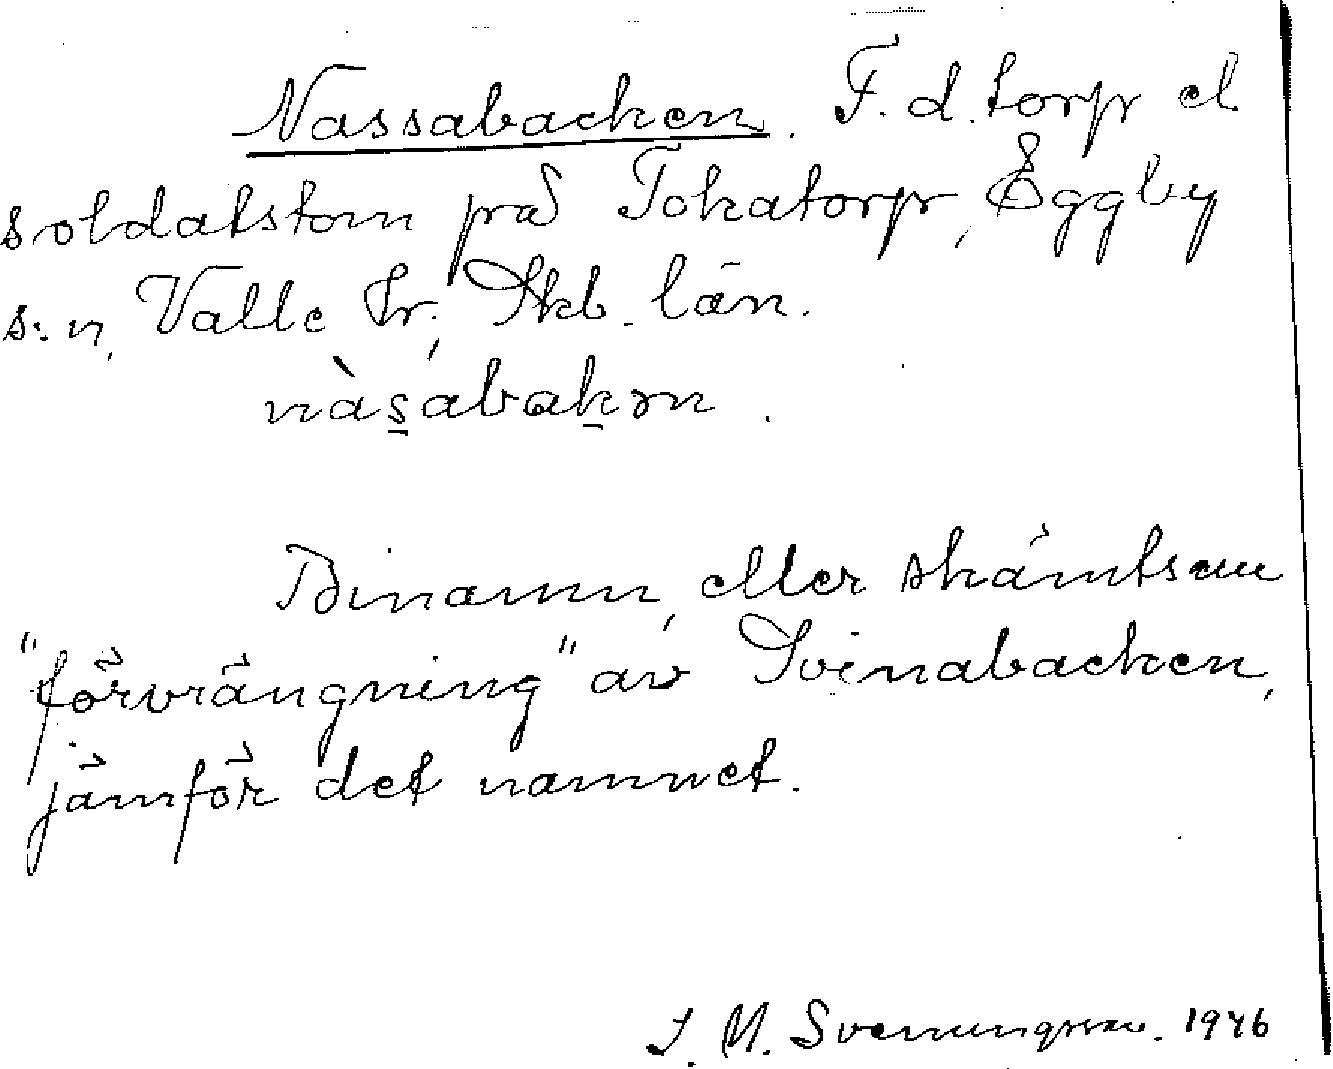 Nassabacken. F. d. torp el
soldatstom på Tokatorp, Eggby
s:n, Valle hr., Skb. län.
nàs̱abaḵən.
Binamn, eller skämtsam
"förvrängning" av Svinabacken,
jämför det namnet.
S. M. Svenungsson. 1946